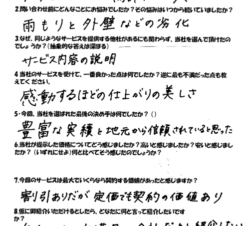 2.問い合せ前にどんなことにお悩みでしたか？その悩みはいつから続いていましたか？
雨もりと外壁などの劣化
3.なぜ、同じようなサービスを提供する他社があるにも関わらず、当社を選んで頂けたの
でしょうか？（抽象的な答えは深ぼる）
サービス内容の説明
4.当社のサービスを受けて、一番良かった点は何でしたか？逆に最も不満だった点も教
えてください。
感動するほどの仕上がりの美しさ
5.今回、当社を選ばれた最後の決め手は何でしたか？
豊富な実績と地元から信頼されていると思った
6.当社が提示した価格についてどう感じましたか？高いと感じましたか？安いと感じまし
たか？（いずれにせよ）何と比べてそう感じたのでしょうか？
7.今回のサービスは最大でいくらなら契約する価値があったと感じますか？
割引ありだが定価でも契約の価値あり
8.仮に御紹介いただけるとしたら、どなたに何と言って紹介したいです
か？